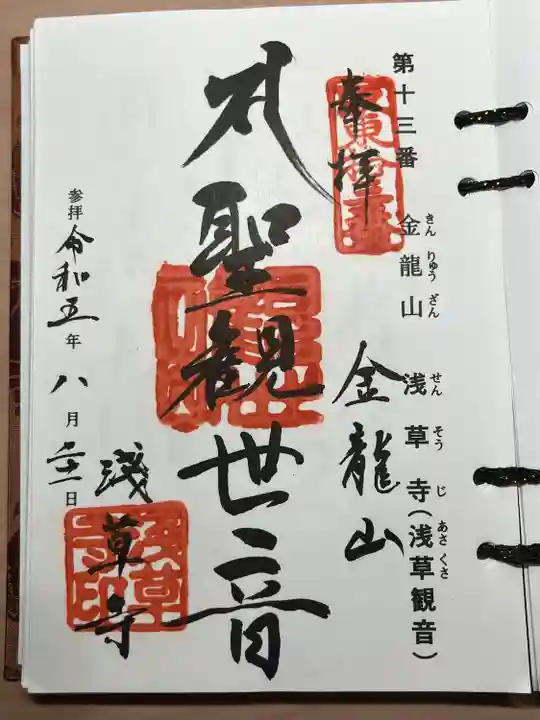 第十三番 金龍山 浅草寺(浅草観音)
きんりゅうざん せんそうじ あさくさ
奉拝
金龍山
聖観世音
浅草寺
参拝 令和五年八月二十一日